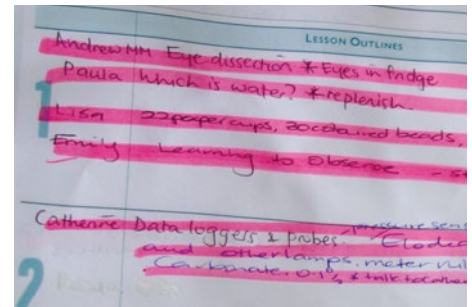 LESSON OUTLINES
Andrew MM Eye dissection * Eyes in fridge
Paula Which is water? * replenish.
1
Lisa 22 paper cups, 20 coloured beads,
Emily Learning to Observe -
Catherine Data loggers & probes. pressure sens
and other lamps. meter rul
2
Carbonate. 0.1% * talk to Cather